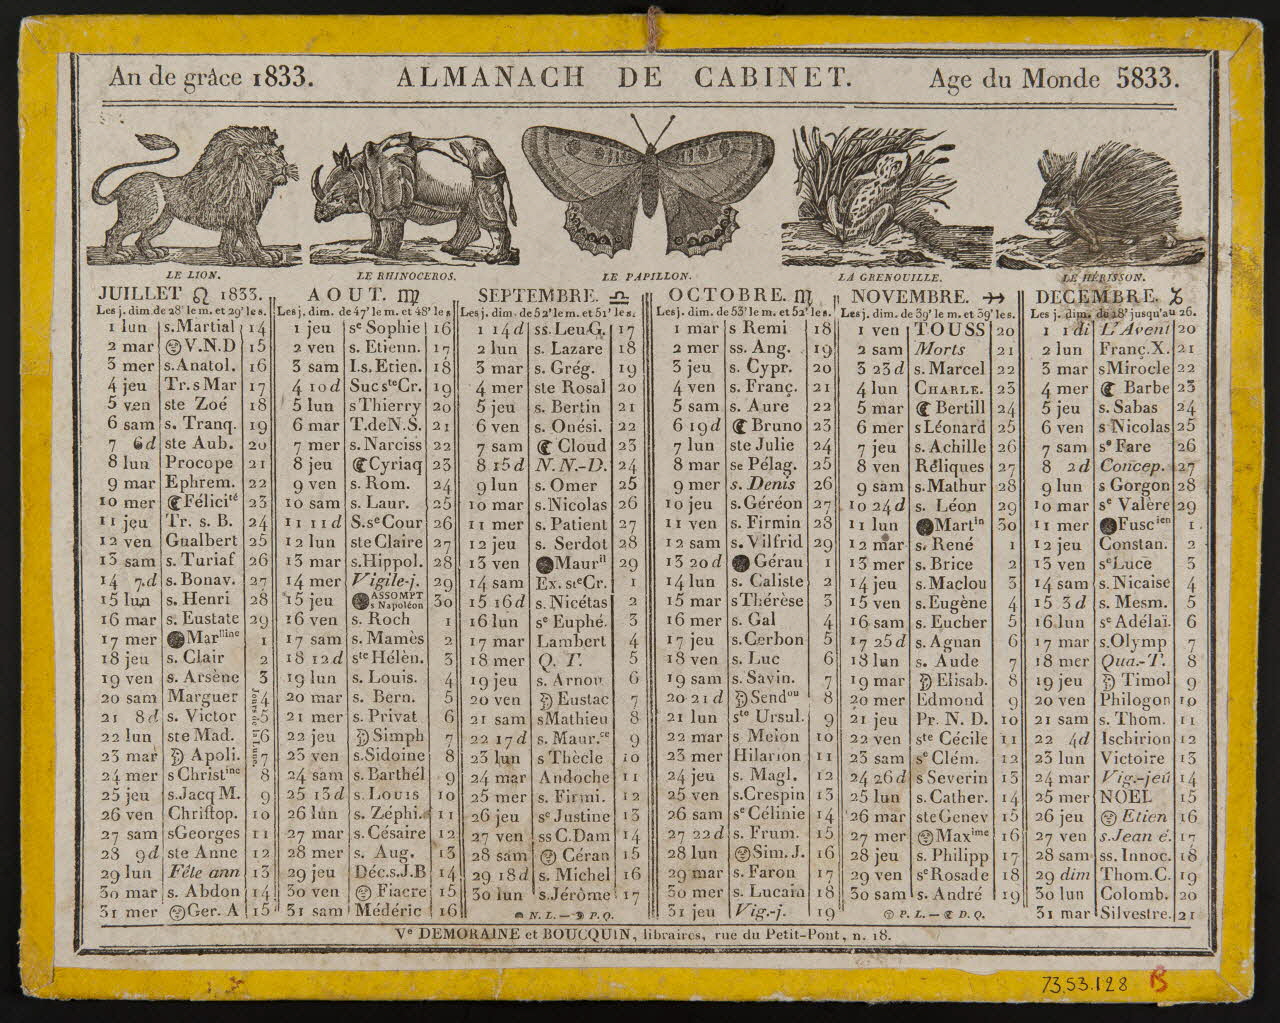 An de grâce 1833. ALMANACH DE CABINET. Age du Monde 5833.
LE LION. LE RHINOCEROS. LE PAPILLON. LA GRENOUILLE. LE HÉRISSON.
JUILLET ♌ 1833.
Les j. dim. de 28' le m. et 29' le s.
1 lun s. Martial 14
2 mar V.N.D 15
3 mer s. Anatol. 16
4 jeu Tr. s Mar 17
5 ven ste Zoé 18
6 sam s. Tranq. 19
7 6d ste Aub. 20
8 lun Procope 21
9 mar Ephrem. 22
10 mer Félicité 23
11 jeu Tr. s. B. 24
12 ven Gualbert 25
13 sam s. Turiaf 26
14 7.d s. Bonav. 27
15 lun s. Henri 28
16 mar s. Eustate 29
17 mer Marlline 1
18 jeu s. Clair 2
19 ven s. Arsène 3
20 sam Marguer 4
21 8d s. Victor 5
22 lun ste Mad. 6
23 mar Apoli. 7
24 mer s Christine 8
25 jeu s. Jacq M. 9
26 ven Chriſtop. 10
27 sam s Georges 11
28 9d ste Anne 12
29 lun Fête ann 13
30 mar s. Abdon 14
31 mer Ger. A 15
Jours de la Lune.
AOUT. ♍
Les j. dim. de 47' le m. et 48' le s
1 jeu se Sophie 16
2 ven s. Etienn. 17
3 sam I.s. Etien. 18
4 10d Suc ste Cr. 19
5 lun s Thierry 20
6 mar T. de N.S. 21
7 mer s. Narciss 22
8 jeu Cyriaq 23
9 ven s. Rom. 24
10 sam s. Laur. 25
11 11d S. se Cour 26
12 lun ste Claire 27
13 mar s. Hippol. 28
14 mer Vigile-j. 29
15 jeu ASSOMPT s Napoléon 30
16 ven s. Roch 1
17 sam s. Mamès 2
18 12d ste Hélèn. 3
19 lun s. Louis. 4
20 mar s. Bern. 5
21 mer s. Privat 6
22 jeu Simph 7
23 ven s. Sidoine 8
24 sam s. Barthél 9
25 13d s. Louis 10
26 lun s. Zéphi. 11
27 mar s. Césaire 12
28 mer s. Aug. 13
29 jeu Déc. s. J. B 14
30 ven Fiacre 15
31 sam Médéric 16
SEPTEMBRE. ♎
Les j. dim. de 52' le m. et 51' le s.
1 14d ss. Leu G. 17
2 lun s. Lazare 18
3 mar s. Grég. 19
4 mer ste Rosal 20
5 jeu s. Bertin 21
6 ven s. Onési. 22
7 sam Cloud 23
8 15d N. N.-D. 24
9 lun s. Omer 25
10 mar s. Nicolas 26
11 mer s. Patient 27
12 jeu s. Serdot 28
13 ven Maurll 29
14 sam Ex. ste Cr. 1
15 16d s. Nicétas 2
16 lun se Euphé. 3
17 mar Lambert 4
18 mer Q. T. 5
19 jeu s. Arnou 6
20 ven Eustac 7
21 sam s Mathieu 8
22 17d s. Maur.ce 9
23 lun s Thècle 10
24 mar Andoche 11
25 mer s. Firmi. 12
26 jeu se Justine 13
27 ven ss C. Dam 14
28 sam Céran 15
29 18d s. Michel 16
30 lun s. Jérôme 17
N. L. — P. Q.
OCTOBRE. ♏
Les j. dim. de 53' le m. et 52' le s.
1 mar s Remi 18
2 mer ss. Ang. 19
3 jeu s. Cypr. 20
4 ven s. Franç. 21
5 sam s. Aure 22
6 19d Bruno 23
7 lun ste Julie 24
8 mar se Pélag. 25
9 mer s. Denis 26
10 jeu s. Géréon 27
11 ven s. Firmin 28
12 sam s. Vilfrid 29
13 20d Gérau 1
14 lun s. Caliste 2
15 mar s Thérèse 3
16 mer s. Gal 4
17 jeu s. Cerbon 5
18 ven s. Luc 6
19 sam s. Savin. 7
20 21d Sendou 8
21 lun ste Ursul. 9
22 mar s Melon 10
23 mer Hilarion 11
24 jeu s. Magl. 12
25 ven s. Crespin 13
26 sam se Célinie 14
27 22d s. Frum. 15
28 lun Sim. J. 16
29 mar s. Faron 17
30 mer s. Lucain 18
31 jeu Vig.-j. 19
NOVEMBRE. ♐
Les j. dim. de 39' le m. et 39' le s.
1 ven TOUSS 20
2 sam Morts 21
3 23d s. Marcel 22
4 lun CHARLE. 23
5 mar Bertill 24
6 mer s Léonard 25
7 jeu s. Achille 26
8 ven Réliques 27
9 sam s. Mathur 28
10 24d s. Léon 29
11 lun Martin 30
12 mar s. René 1
13 mer s. Brice 2
14 jeu s. Maclou 3
15 ven s. Eugène 4
16 sam s. Eucher 5
17 25d s. Agnan 6
18 lun s. Aude 7
19 mar Elisab. 8
20 mer Edmond 9
21 jeu Pr. N. D. 10
22 ven ste Cécile 11
23 sam se Clém. 12
24 26d s Severin 13
25 lun s. Cather. 14
26 mar ste Genev 15
27 mer Maxime 16
28 jeu s. Philipp 17
29 ven se Rosade 18
30 sam s. André 19
P. L. — D. Q.
DECEMBRE. ♑
Les j. dim. de 18' jusqu'au 26.
1 1 di L'Avent 20
2 lun Franç. X. 21
3 mar s Mirocle 22
4 mer Barbe 23
5 jeu s. Sabas 24
6 ven s Nicolas 25
7 sam se Fare 26
8 2d Concep. 27
9 lun s Gorgon 28
10 mar se Valère 29
11 mer Fuscien 1
12 jeu Constan. 2
13 ven se Luce 3
14 sam s. Nicaise 4
15 3d s. Mesm. 5
16 lun se Adélaï. 6
17 mar s. Olymp 7
18 mer Qua.-T. 8
19 jeu Timol 9
20 ven Philogon 10
21 sam s. Thom. 11
22 4d Ischirion 12
23 lun Victoire 13
24 mar Vig.-jeû 14
25 mer NOEL 15
26 jeu Etien 16
27 ven s. Jean é. 17
28 sam ss. Innoc. 18
29 dim Thom. C. 19
30 lun Colomb. 20
31 mar Silvestre. 21
Ve DEMORAINE et BOUCQUIN, libraires, rue du Petit-Pont, n. 18.
73.53.128 B